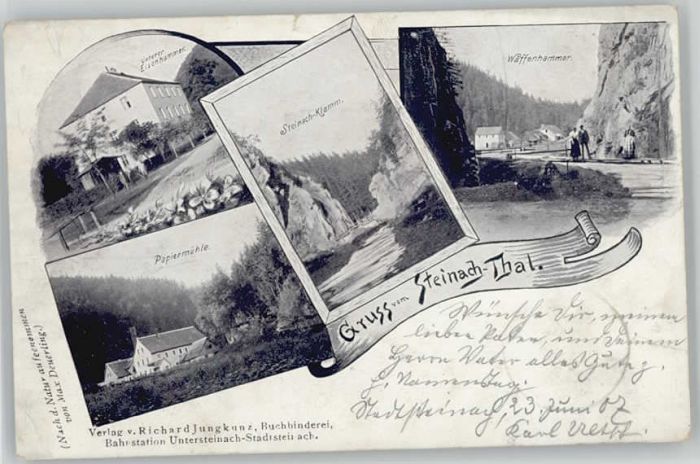 Unterer
Eisenhammer.
Steinach-Klamm.
Waffenhammer.
Papiermühle.
Gruss vom Steinach-Thal.
Wünsche Dir, meinem
lieben Paten, und Deinem
Herrn Vater alles Gute z.
h. Namenstag.
Stadtsteinach, 23. Juni 07
Karl
(Nach d. Natur aufgenommen
von Max Deuerling.)
Verlag v. Richard Jungkunz, Buchbinderei,
Bahnstation Untersteinach-Stadtsteinach.